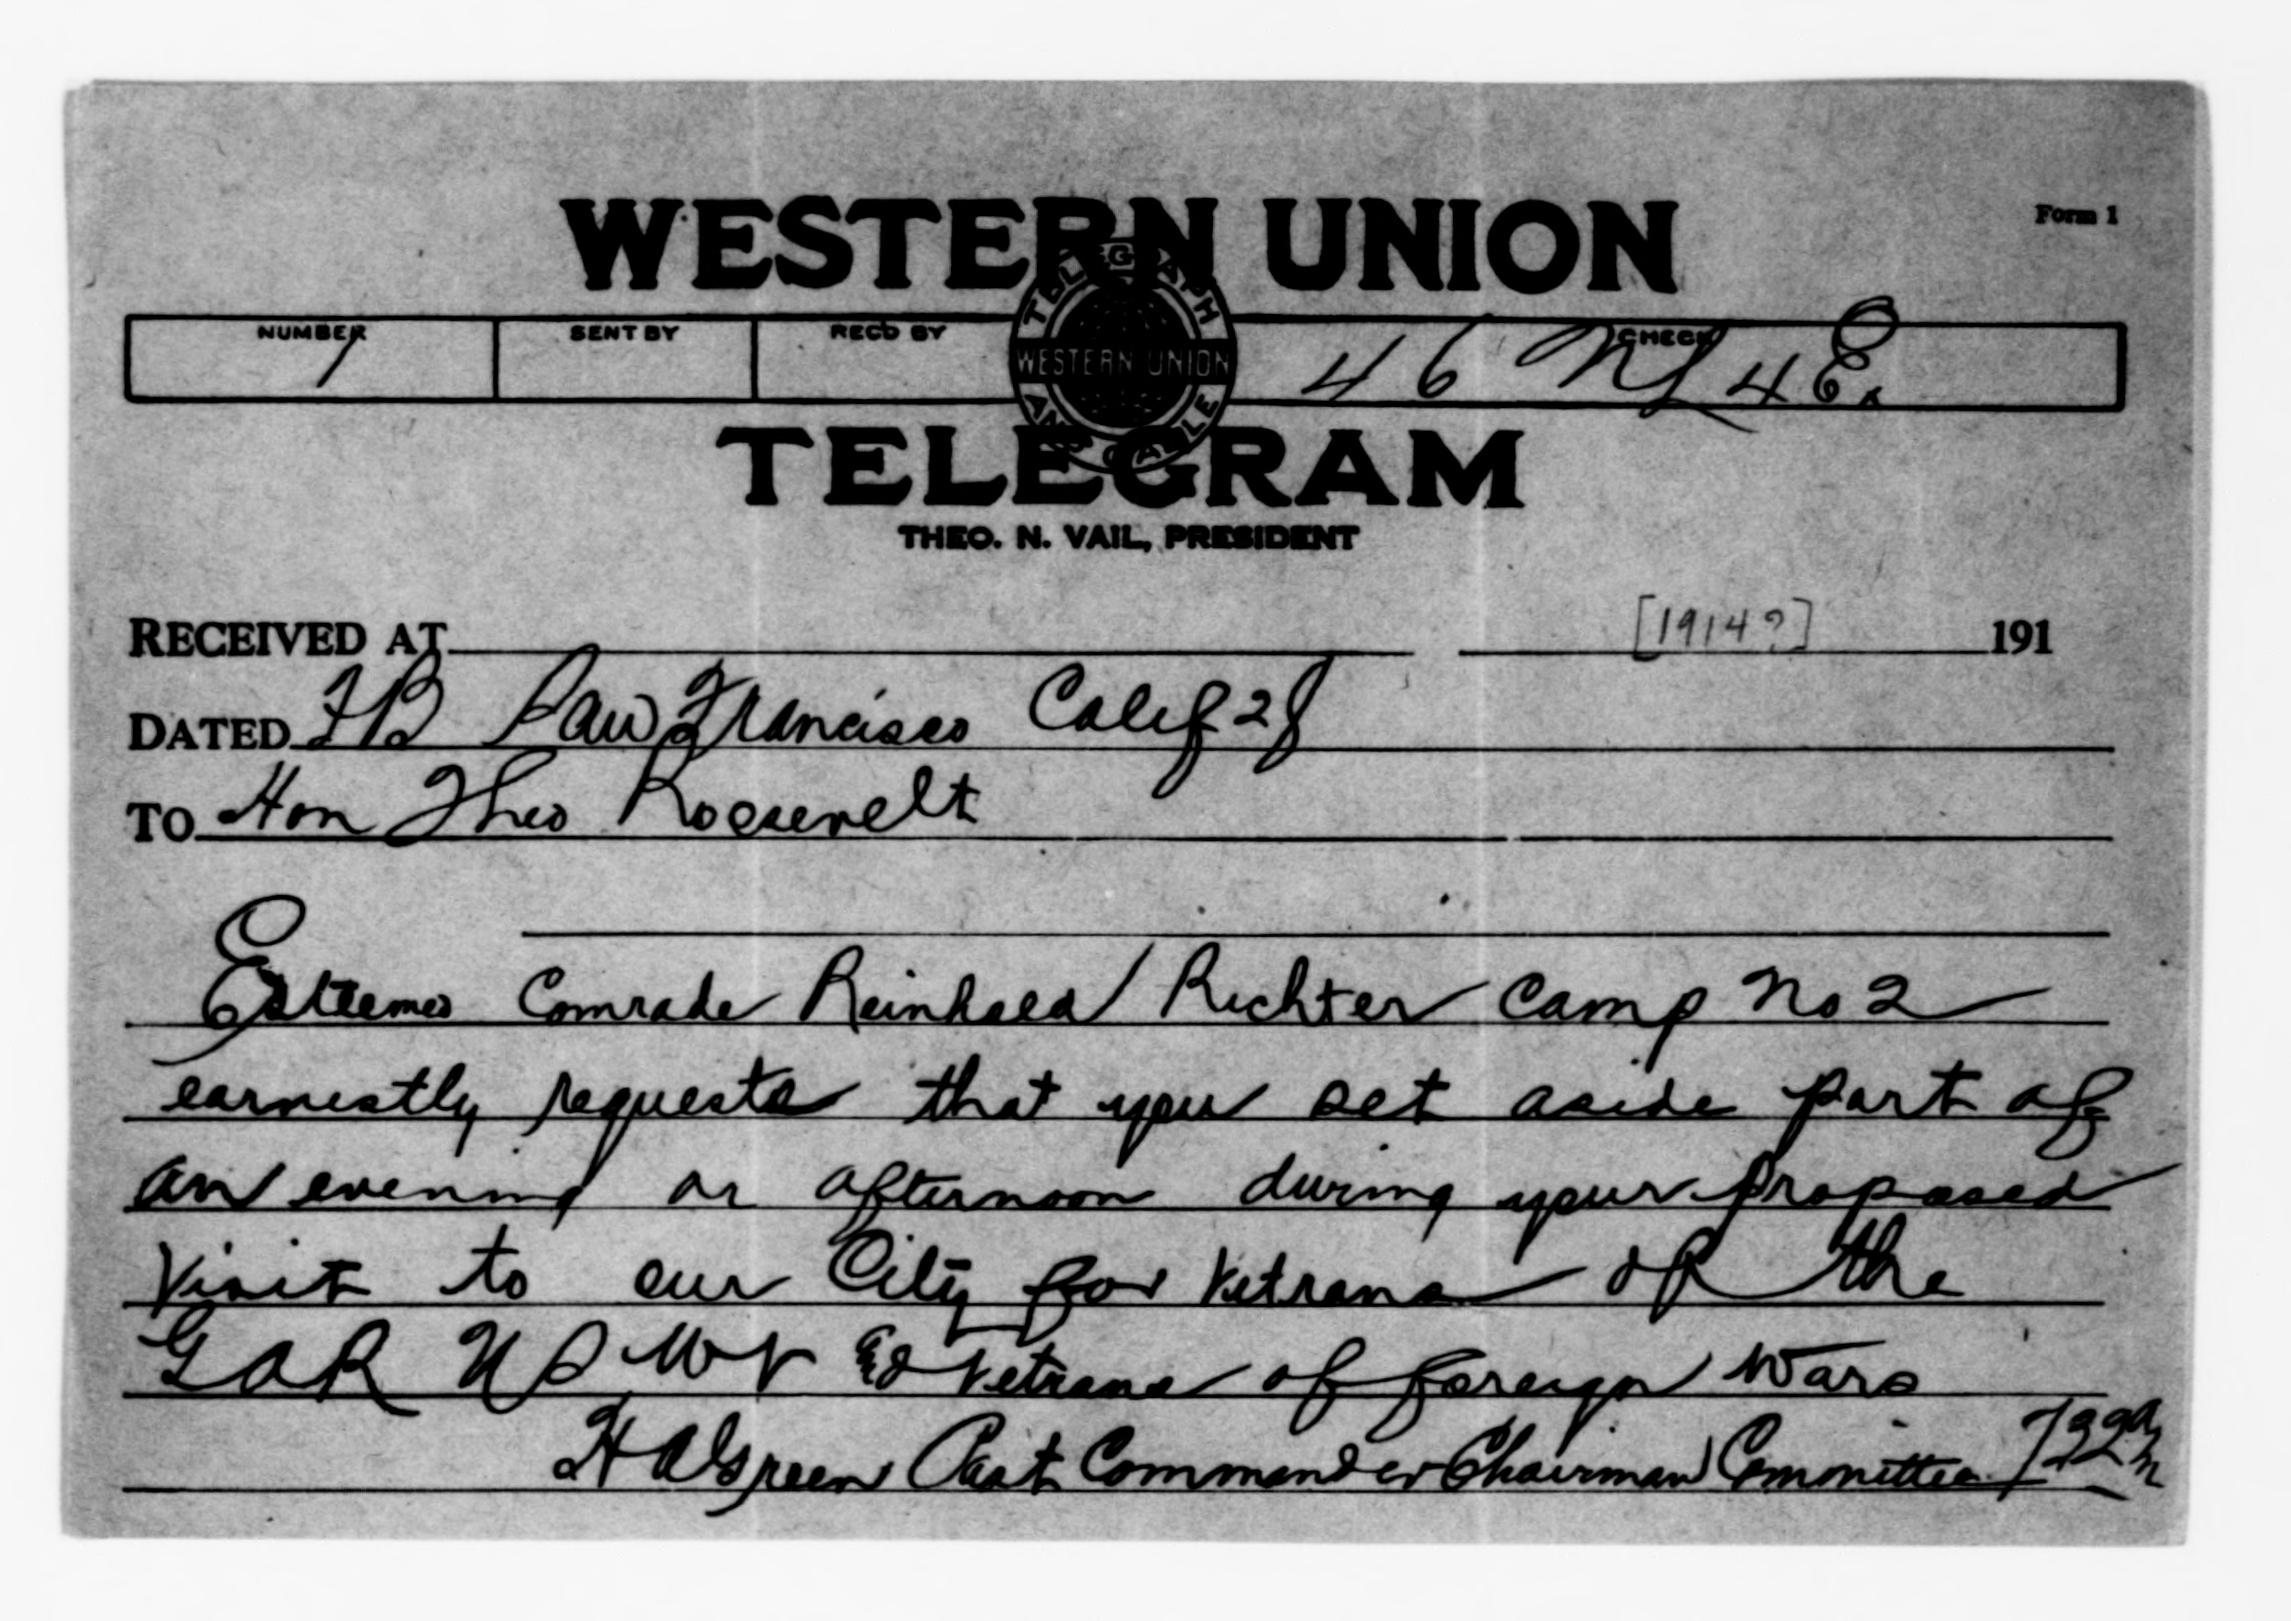 WESTERN UNION
Form 1
NUMBER SENT BY REC'D BY CHECK
1 46 NL 4 Ex
TELEGRAPH
WESTERN UNION
AND CABLE
TELEGRAM
THEO. N. VAIL, PRESIDENT
RECEIVED AT [1914?] 191
DATED FB San Francisco Calif 28
TO Hon Theo Roosevelt
Esteemed Comrade Reinhold Richter Camp No 2
earnestly requests that you set aside part of
an evening or afternoon during your proposed
visit to our City for Vetrans of the
GAR U S W V & Vetrans of foreign Wars
H A Green Past Commander Chairman Committee 732am